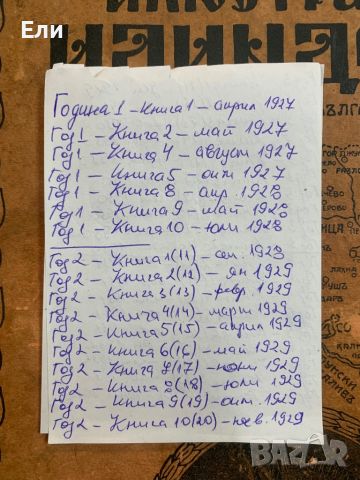 Ели
ИЛЮСТР
Година 1 – Книга 1 – април 1927
Год 1 – Книга 2 – май 1927
Год 1 – Книга 4 – август 1927
Год 1 – Книга 5 – окт 1927
Год 1 – Книга 8 – апр. 1928
Год 1 – Книга 9 – май 1928
Год 1 – Книга 10 – юли 1928
Год 2 – Книга 1 (11) – сеп. 1928
Год 2 – Книга 2 (12) – ян 1929
Год 2 – Книга 3 (13) – февр. 1929
Год 2 – Книга 4 (14) – март 1929
Год 2 – Книга 5 (15) – април 1929
Год 2 – Книга 6 (16) – май 1929
Год 2 – Книга 7 (17) – юни 1929
Год 2 – Книга 8 (18) – юли 1929
Год 2 – Книга 9 (19) – окт. 1929
Год 2 – Книга 10 (20) – ноев. 1929
BAZAR
bg